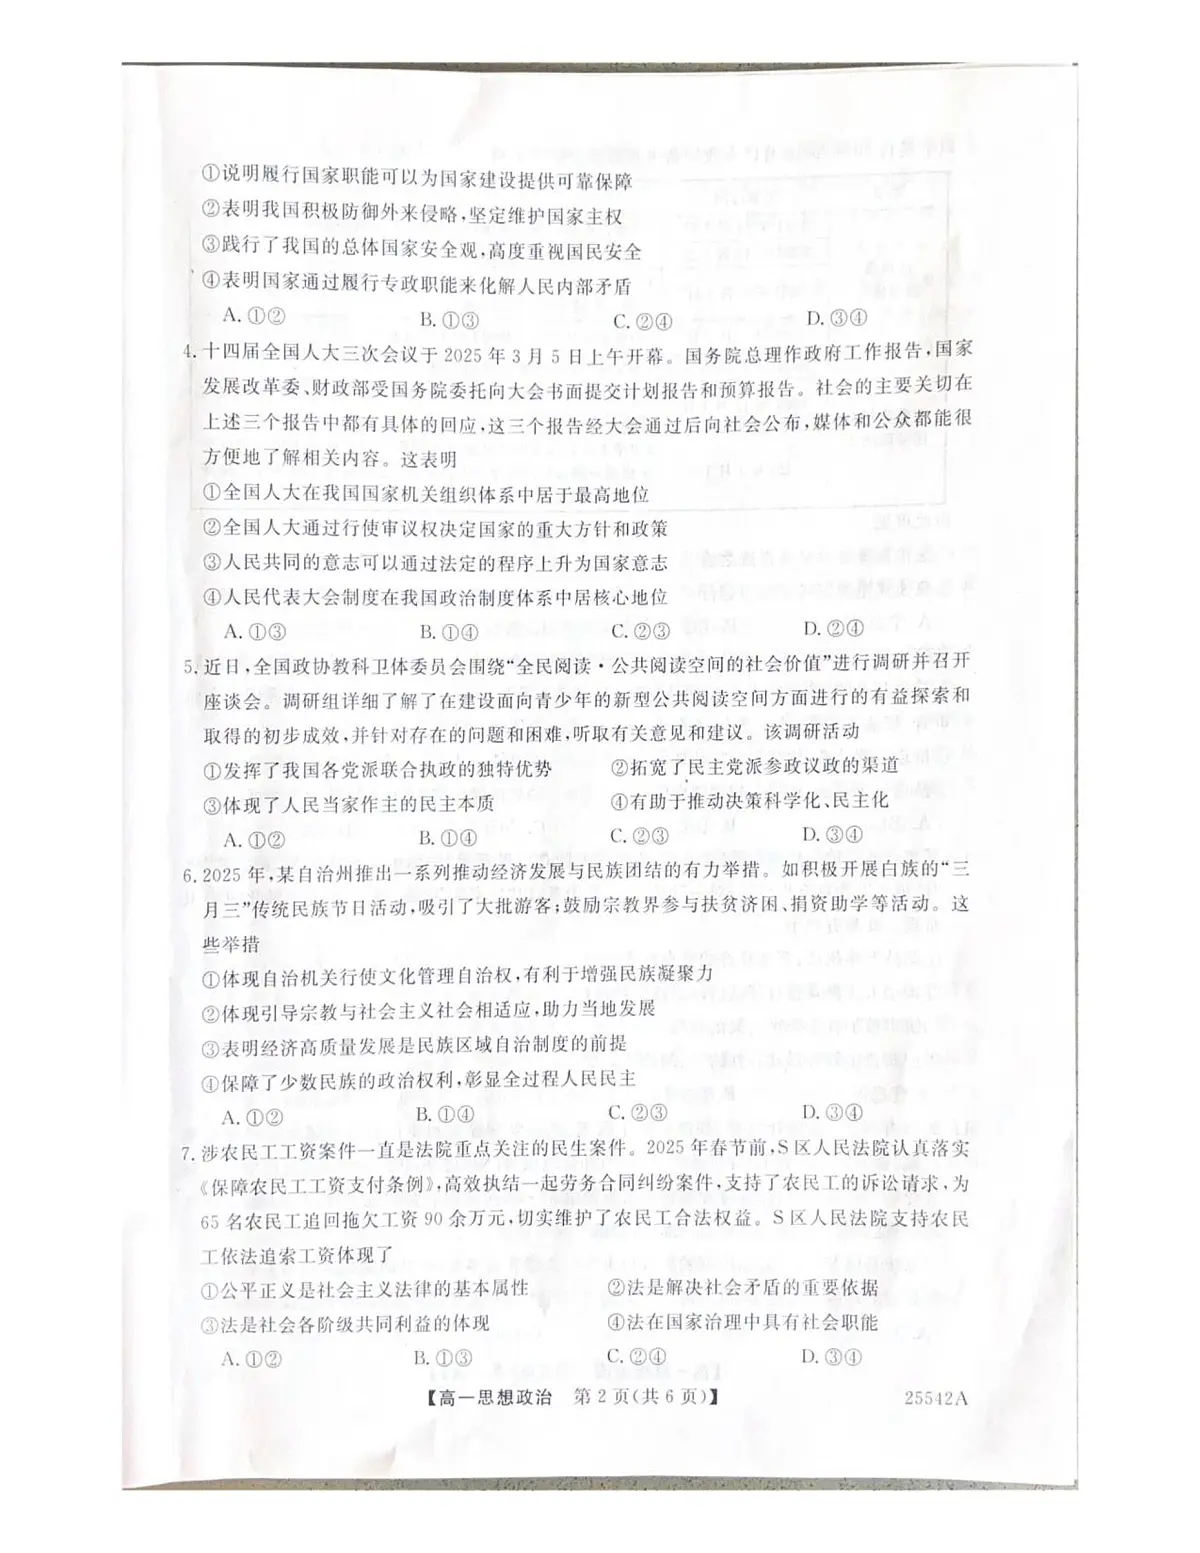 ①说明履行国家职能可以为国家建设提供可靠保障
②表明我国积极防御外来侵略,坚定维护国家主权
③践行了我国的总体国家安全观,高度重视国民安全
④表明国家通过履行专政职能来化解人民内部矛盾
A. ①② B. ①③ C. ②④ D. ③④
4. 十四届全国人大三次会议于 2025 年 3 月 5 日上午开幕。国务院总理作政府工作报告,国家
发展改革委、财政部受国务院委托向大会书面提交计划报告和预算报告。社会的主要关切在
上述三个报告中都有具体的回应,这三个报告经大会通过后向社会公布,媒体和公众都能很
方便地了解相关内容。这表明
①全国人大在我国国家机关组织体系中居于最高地位
②全国人大通过行使审议权决定国家的重大方针和政策
③人民共同的意志可以通过法定的程序上升为国家意志
④人民代表大会制度在我国政治制度体系中居核心地位
A. ①③ B. ①④ C. ②③ D. ②④
5. 近日,全国政协教科卫体委员会围绕“全民阅读·公共阅读空间的社会价值”进行调研并召开
座谈会。调研组详细了解了在建设面向青少年的新型公共阅读空间方面进行的有益探索和
取得的初步成效,并针对存在的问题和困难,听取有关意见和建议。该调研活动
①发挥了我国各党派联合执政的独特优势 ②拓宽了民主党派参政议政的渠道
③体现了人民当家作主的民主本质 ④有助于推动决策科学化、民主化
A. ①② B. ①④ C. ②③ D. ③④
6. 2025 年,某自治州推出一系列推动经济发展与民族团结的有力举措。如积极开展白族的“三
月三”传统民族节日活动,吸引了大批游客;鼓励宗教界参与扶贫济困、捐资助学等活动。这
些举措
①体现自治机关行使文化管理自治权,有利于增强民族凝聚力
②体现引导宗教与社会主义社会相适应,助力当地发展
③表明经济高质量发展是民族区域自治制度的前提
④保障了少数民族的政治权利,彰显全过程人民民主
A. ①② B. ①④ C. ②③ D. ③④
7. 涉农民工工资案件一直是法院重点关注的民生案件。2025 年春节前,S 区人民法院认真落实
《保障农民工工资支付条例》,高效执结一起劳务合同纠纷案件,支持了农民工的诉讼请求,为
65 名农民工追回拖欠工资 90 余万元,切实维护了农民工合法权益。S 区人民法院支持农民
工依法追索工资体现了
①公平正义是社会主义法律的基本属性 ②法是解决社会矛盾的重要依据
③法是社会各阶级共同利益的体现 ④法在国家治理中具有社会职能
A. ①② B. ①③ C. ②④ D. ③④
【高一思想政治 第 2 页(共 6 页)】 25542A